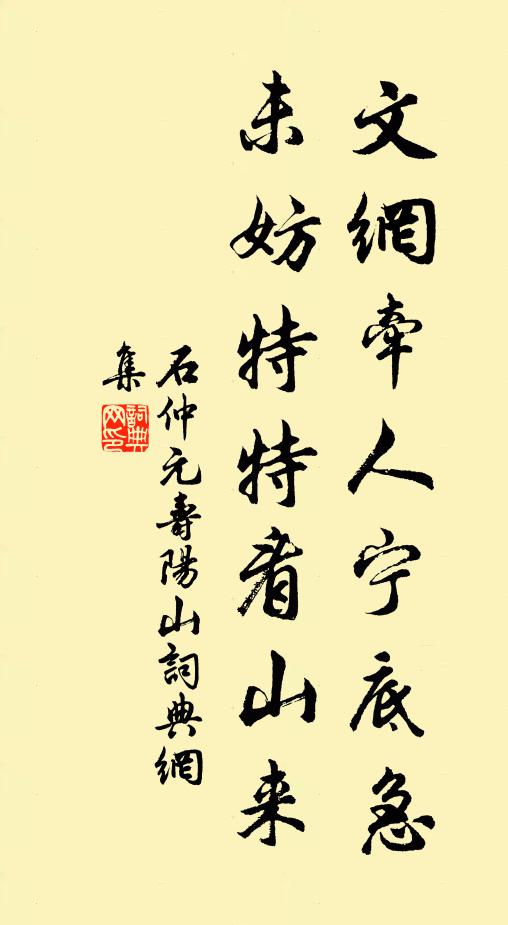 文網牽人宁底急
未妨特特看山来
石仲元壽陽山詞典網
集
詞典網印